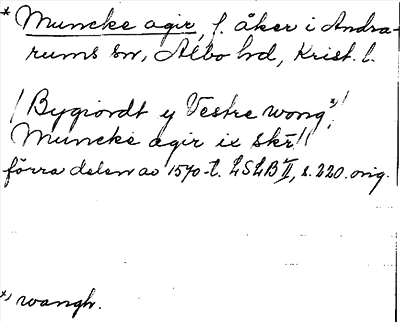 * Muncke agir, f. åker i Andra-
rums sn, Albo hd, Krist. l.
/ Bygiordt y Vestre wong *) /
Muncke agir ix skr //
förra delen av 1570-t. LSLB II, s. 220. orig.
*) wangh.